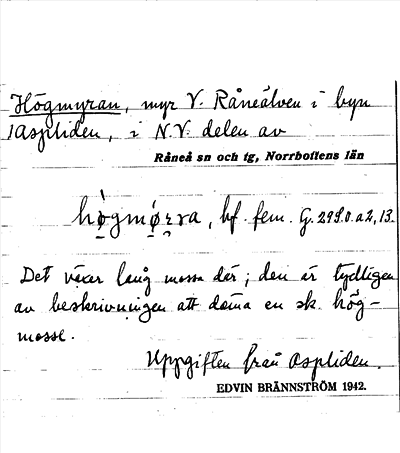 Högmyran, myr V. Råneälven i byn
Aspliden, i N.V. delen av
Råneå sn och tg, Norrbottens län
hö̀gmø̣rra, bf. fem. G. 299.0.a2,13.
Det växer lång mossa där; den är tydligen
av beskrivningen att döma en sk. hög-
mosse.
Uppgiften från Aspliden.
EDVIN BRÄNNSTRÖM 1942.